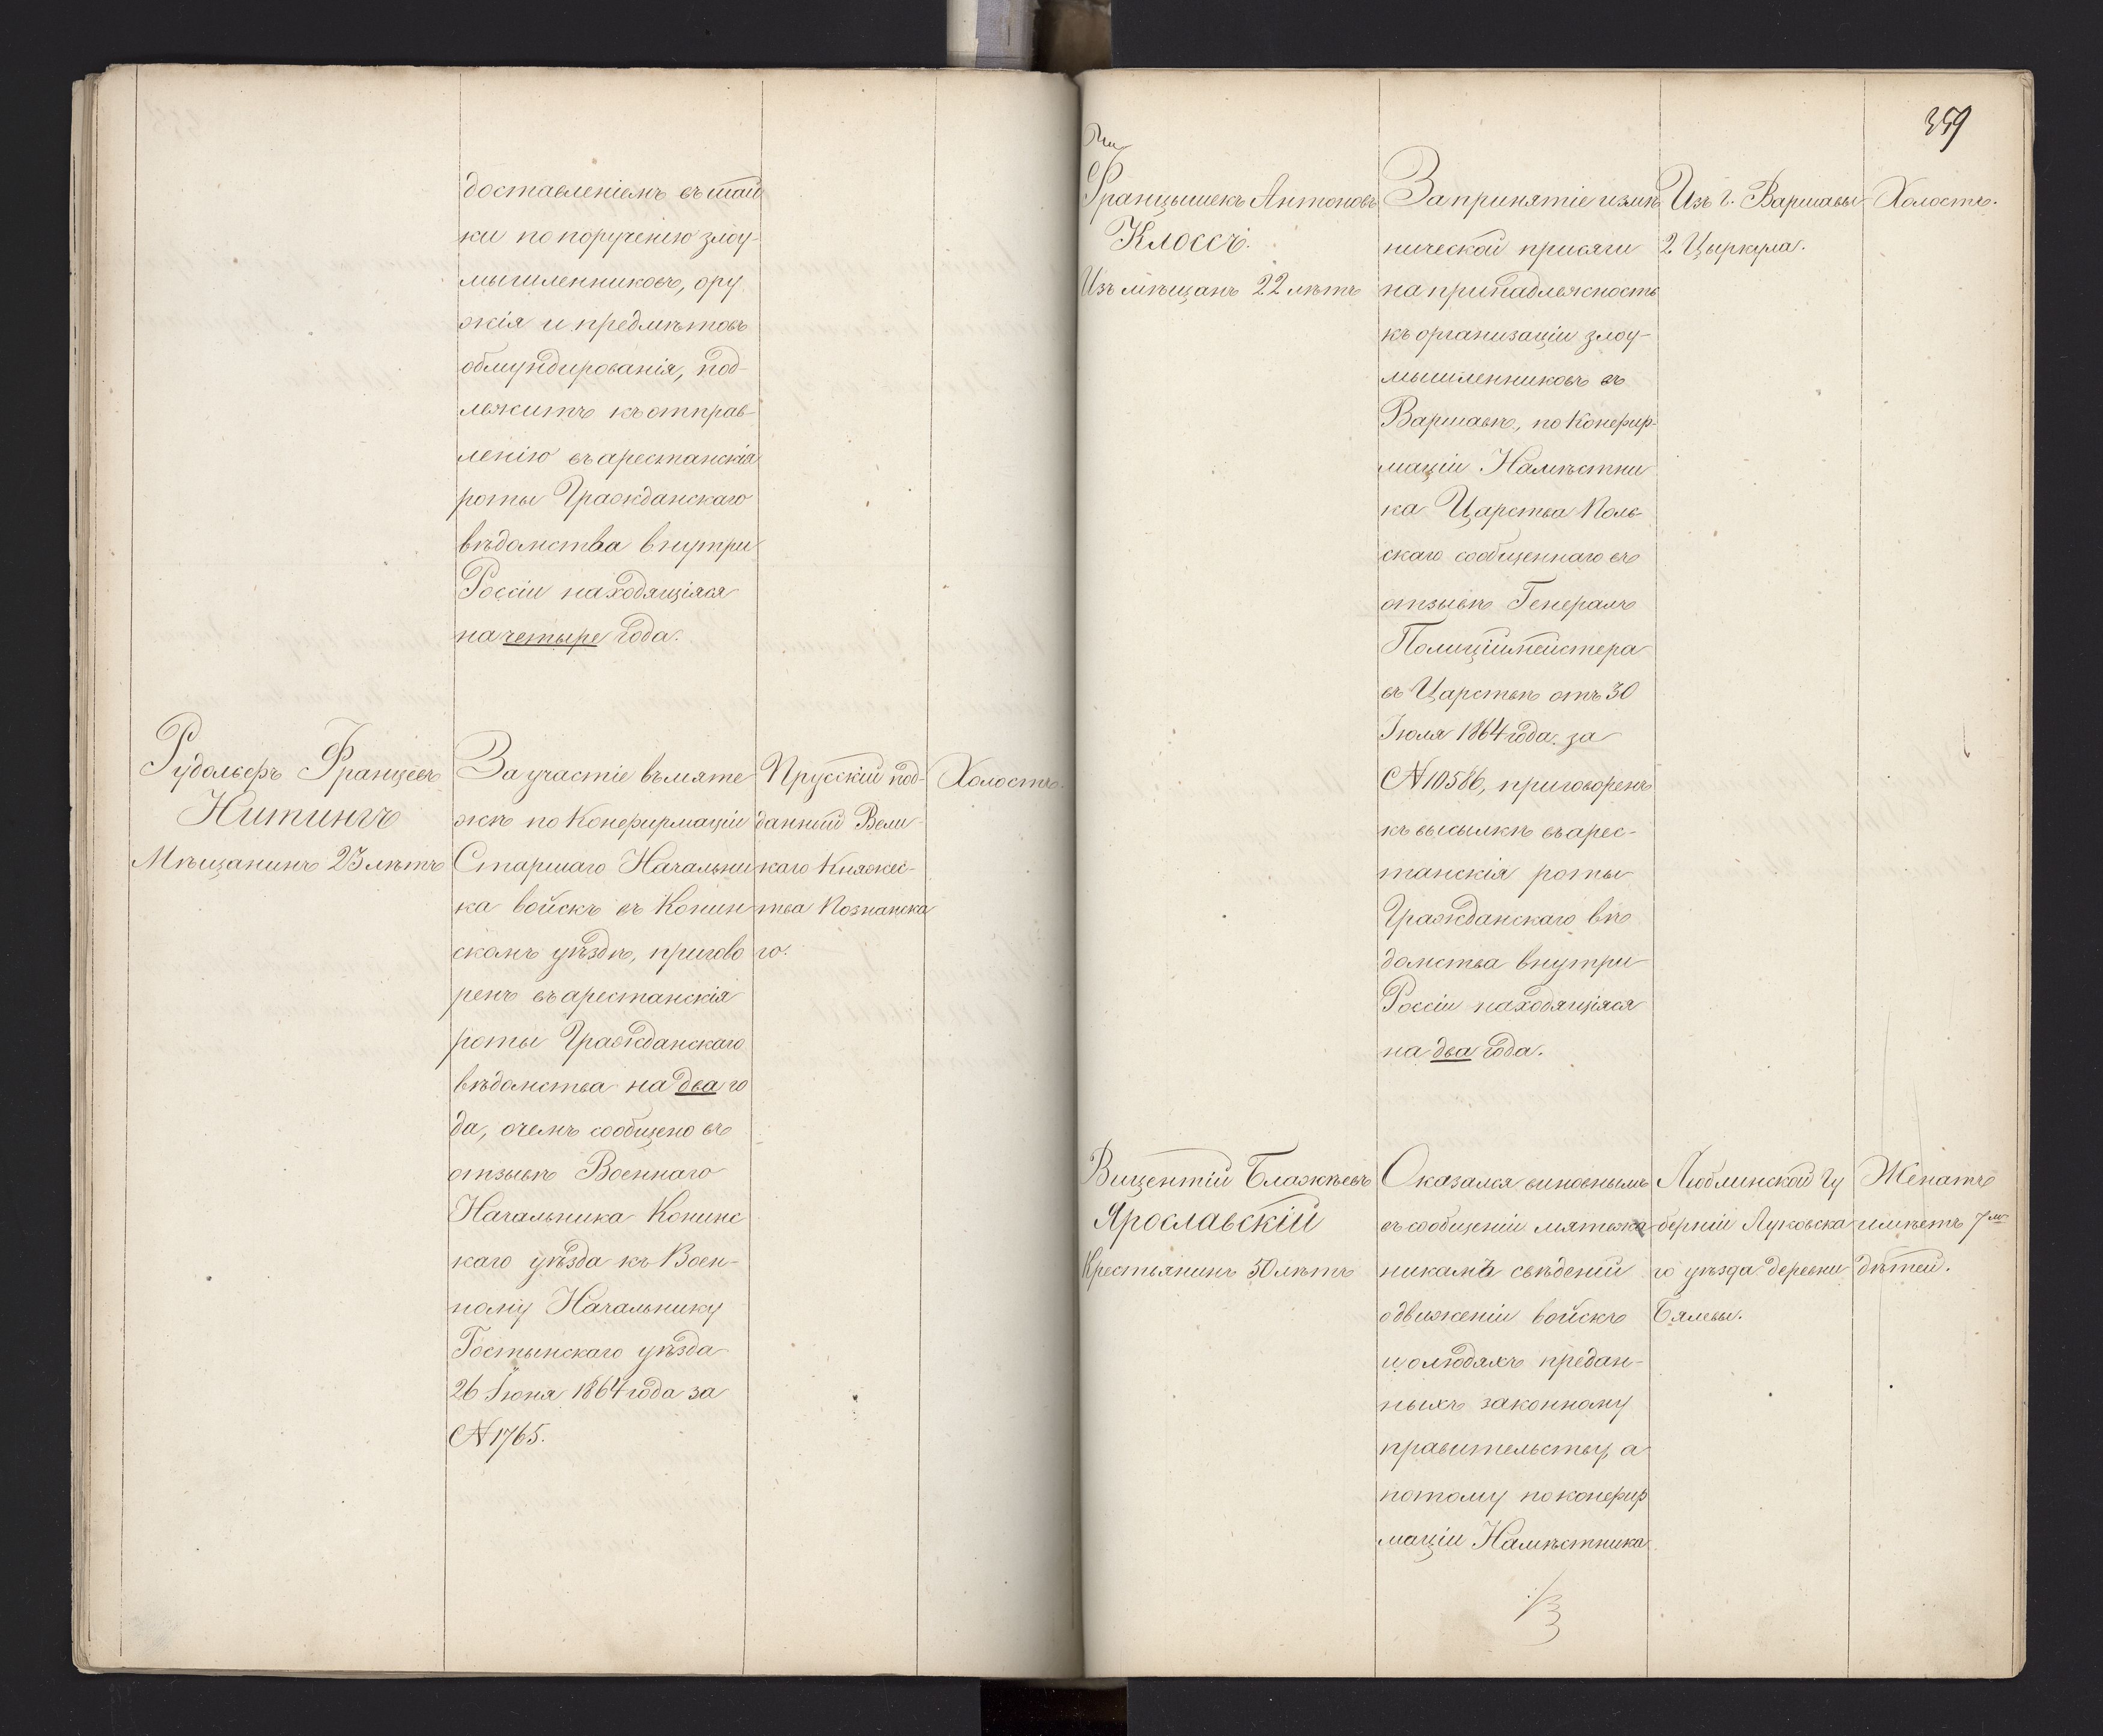 доставленіемъ въ шай
ки по порученію злоу-
мышленниковъ, ору
жія и предмѣтовъ
обмундированія, под-
лежитъ къ отправ-
ленію въ арестанскія
роты Гражданскаго
вѣдомства внутри
Россіи находящіяся
на четыре года.
Рудольфъ Францевъ
Нитингъ
Мѣщанинъ 23 лѣтъ
За участіе въ мяте
жѣ по Конфирмаціи
Старшаго Начальни
ка войскъ въ Конин
скомъ уѣздѣ, пригово
ренъ въ арестанскія
роты Гражданскаго
вѣдомства на два го
да, о чемъ сообщено въ
отзывѣ Военнаго
Начальника Конинс
каго уѣзда къ Воен-
ному Начальнику
Гостынскаго уѣзда
26 Іюня 1864 года за
№ 1765.
Прусскій под-
данный Вели
каго Княжес-
тва Познанска
го.
Холостъ.
359
Францышекъ Антоновъ
Клоссъ.
Изъ мѣщанъ 22 лѣтъ
За принятіе измѣ
нической присяги
на принадлежность
къ организаціи злоу-
мышленниковъ въ
Варшавѣ, по Конфир-
маціи Намѣстни
ка Царства Поль-
скаго сообщеннаго въ
отзывѣ Генералъ
Полиціймейстера
въ Царствѣ отъ 30
Іюля 1864 года за
№ 10586, приговоренъ
къ высылкѣ въ арес-
танскія роты
Гражданскаго вѣ
домства внутри
Россіи находящіяся
на два года.
Изъ г. Варшавы
2 Цыркула.
Холостъ.
Вицентій Блажѣевъ
Ярославскій
Крестьянинъ 50 лѣтъ
Оказался виновнымъ
въ сообщеніи мятеж
никамъ свѣденій
о движеніи войскъ
и о людяхъ предан-
ныхъ законному
правительству, а
потому по конфир
маціи Намѣстника
Люблинской Гу
берніи Луковска
го уѣзда деревни
Бялевы.
Женатъ
имѣетъ 7 мъ
дѣтей.